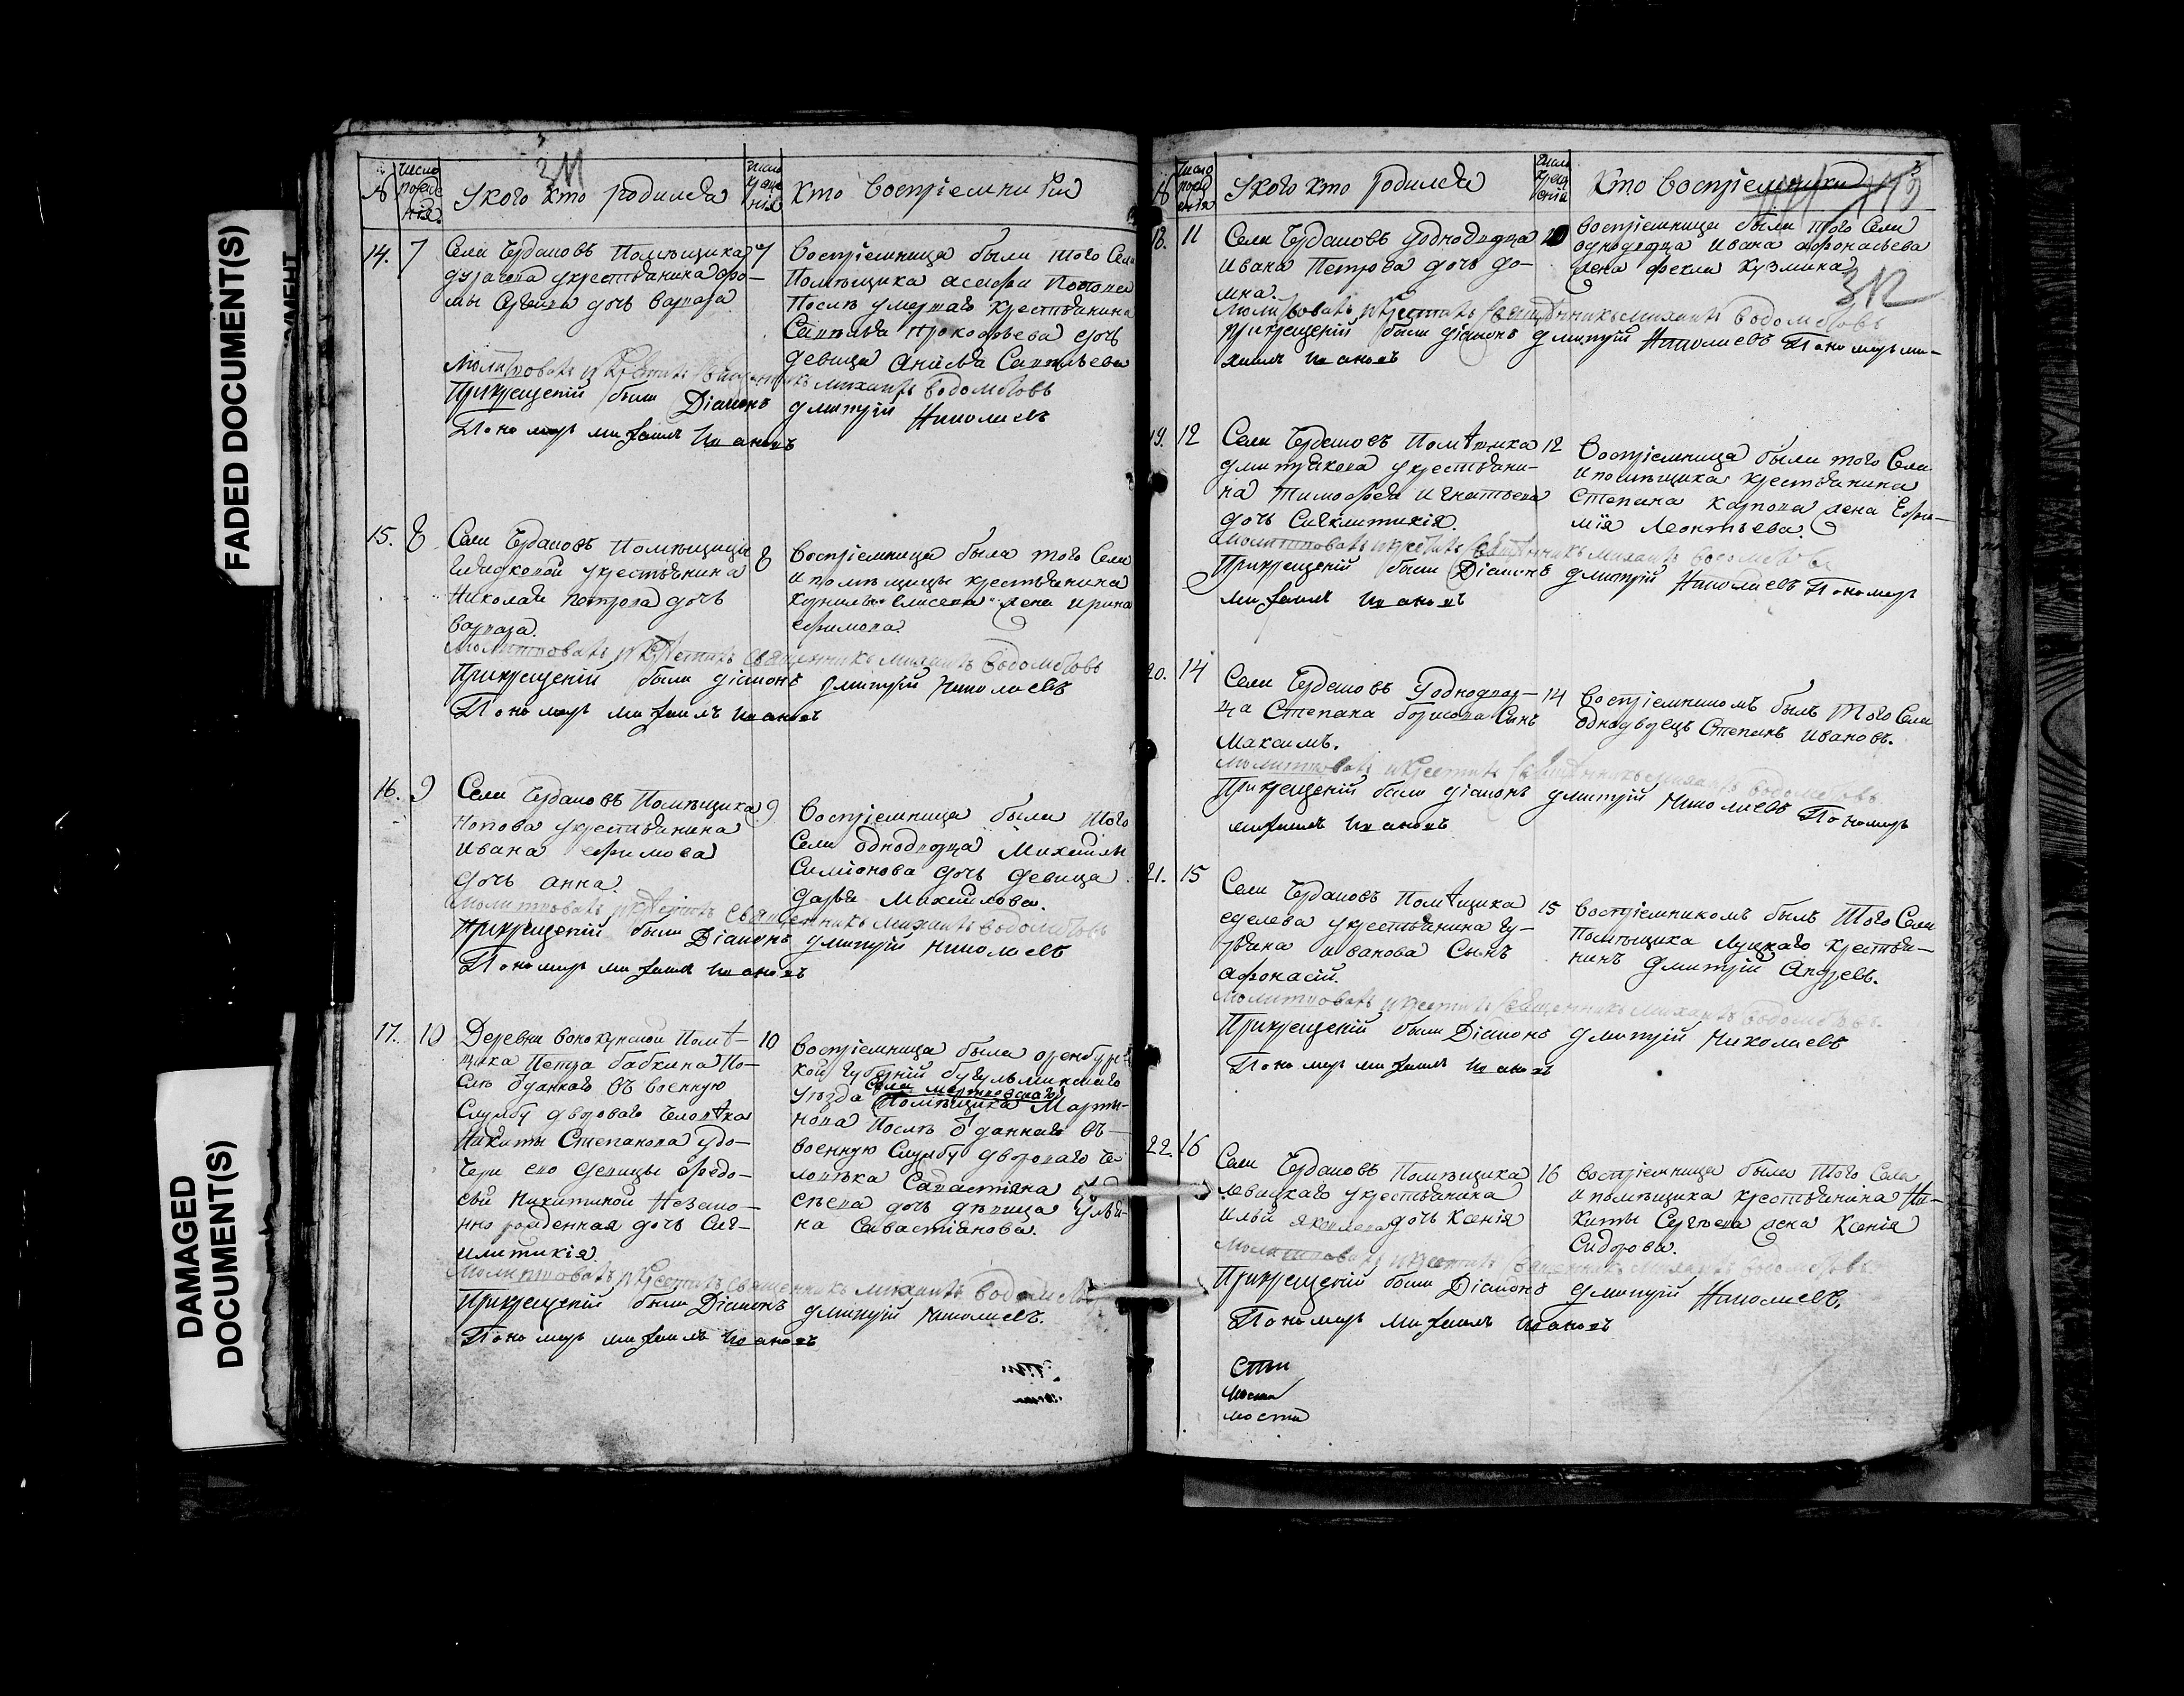 FADED DOCUMENT(S)
DAMAGED
DOCUMENT(S)
311
№
число рожде нія
У кого кто родился
число креще нія
Кто воспріемники
14. 7
Села Чердаковъ Помѣщика
у крестьянина Фо-
мы Сергеева дочь варвара
7
Воспріемница была того Села
Помѣщика
Послѣ умершаго крестьянина
Савелья Прокофьева дочь
девица Анисья Савельева
Молитвовалъ и крестилъ священникъ михаилъ водолеевъ
При крещеній были Діаконъ дмитрій Николаевъ
Пономарь михаилъ Ивановъ
15. 8
Села Чердаковъ Помѣщицы
у крестьянина
Николая петрова дочь
варвара.
8
Воспріемница была того Села
и помѣщицы крестьянина
Корнилы елисеева жена ирина
ефимова.
Молитвовалъ и крестилъ священникъ михаилъ
При крещеній были діаконъ дмитрій Николаевъ
Пономарь михаилъ Ивановъ
16. 9
Села Чердаковъ Помѣщика
Попова у крестьянина
Ивана ефимова
дочь анна.
9
Воспріемница была того
Села однодворца Михаилы
Симіонова дочь девица
дарья Михаилова.
Молитвовалъ и крестилъ священникъ михаилъ
При крещеній были Діаконъ дмитрій Николаевъ
Пономарь михаилъ Ивановъ
17. 10
Деревни Помѣ-
щика Петра бабкина По-
слѣ отданнаго въ военную
Службу двороваго человѣка
Никиты Степанова у до-
чери его девицы федо-
сьи Никитиной Незако-
нно рожденная дочь Сиг-
клитикія.
10
Воспріемница была оренбург-
кой губерніи бугульминскаго
уѣзда
Села мартиновскаго
Помѣщика Марты-
нова Послѣ отданнаго въ
военную Службу двороваго че-
ловѣка Савастьяна
дочь дѣвица улья-
на Савастьянова.
Молитвовалъ и крестилъ священникъ михаилъ
При крещеній были Діаконъ дмитрій Николаевъ.
Пономарь михаилъ Ивановъ
№
число рожденія
У кого кто родился
число крещенія
Кто воспріемники
312
18. 11
Села Чердаковъ У однодворца
Ивана Петрова дочь до-
мна.
Воспріемница была того Села
однодворца Ивана афонасьева
жена фекла Кузмина
Молитвовалъ и крестилъ священникъ михаилъ
При крещеній были діаконъ дмитрій Николаевъ Пономарь ми-
хаилъ Ивановъ
19. 12
Села Чердаковъ Помѣщика
у крестьяни-
на тимофея игнатьева
дочь Сигклитикія.
12
Воспріемница была того Села
и помѣщика крестьянина
Степана карпова жена Ефи-
мія Леонтьева.
Молитвовалъ и крестилъ священникъ михаилъ
При крещеній были Діаконъ дмитрій Николаевъ Пономарь
михаилъ Ивановъ
20. 14
Села Чердаковъ У однодвор-
ца Степана борисова Сынъ
Максимъ.
14
Воспріемникомъ былъ того Села
однодворецъ Степанъ Ивановъ.
Молитвовалъ и крестилъ священникъ михаилъ
При крещеній были діаконъ дмитрій Николаевъ Пономарь
михаилъ Ивановъ
21. 15
Села Чердаковъ Помѣщика
у крестьянина гу-
рьяна иванова Сынъ
афонасій.
15
Воспріемникомъ былъ того Села
Помѣщика Луцкаго крестья-
нинъ дмитрій Андревъ.
Молитвовалъ и крестилъ священникъ михаилъ
При крещеній были Діаконъ дмитрій Николаевъ
Пономарь михаилъ Ивановъ
22. 16
Села Чердаковъ Помѣщика
у крестьянина
Ильи яковлева дочь Ксенія
16
Воспріемница была того Села
и помѣщика крестьянина Ни-
киты Сергѣева жена Ксенія
Сидорова.
Молитвовалъ и крестилъ священникъ михаилъ
При крещеній были Діаконъ дмитрій Николаевъ.
Пономарь михаилъ Ивановъ